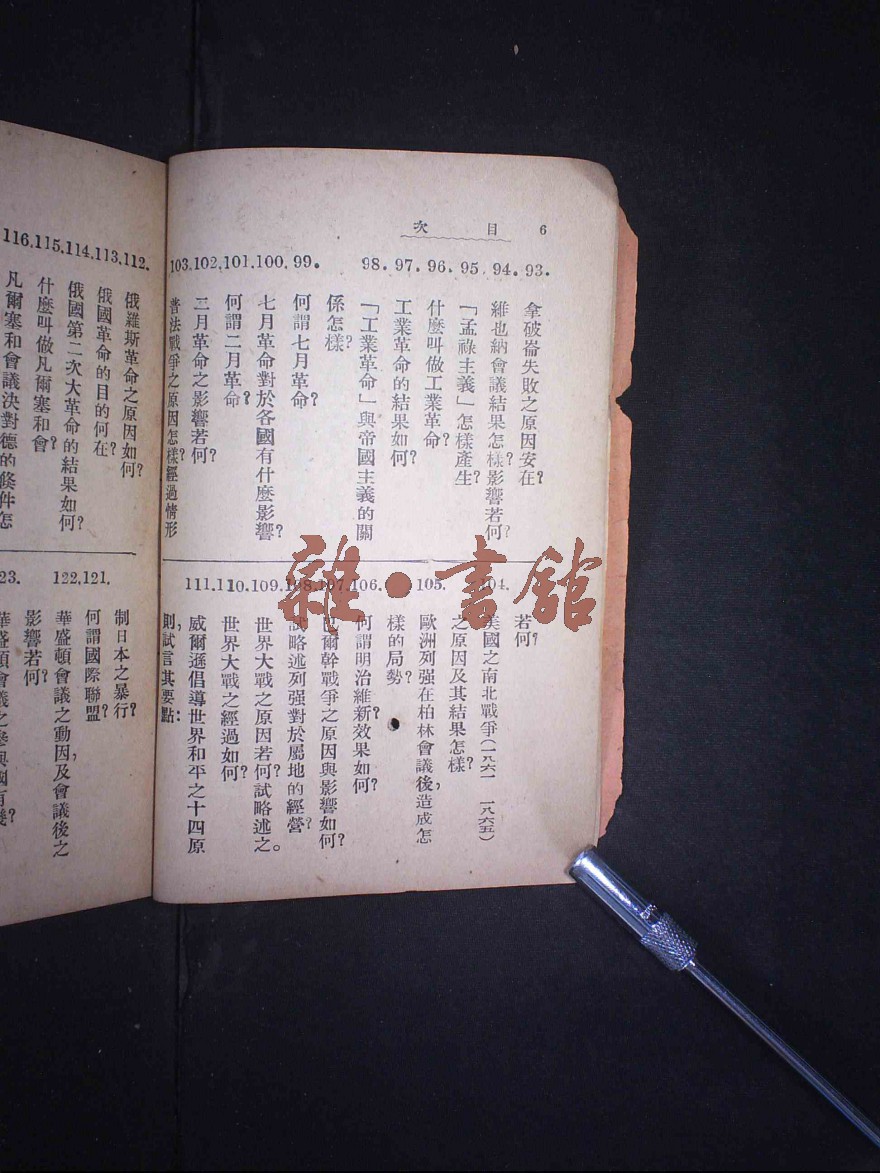 6 目次
93. 拿破崙失敗之原因安在?
94. 維也納會議結果怎樣?影響若何?
95. 「孟祿主義」怎樣產生?
96. 什麼叫做工業革命?
97. 工業革命的結果如何?
98. 「工業革命」與帝國主義的關
係怎樣?
99. 何謂七月革命?
100. 七月革命對於各國有什麼影響?
101. 何謂二月革命?
102. 二月革命之影響若何?
103. 普法戰爭之原因怎樣?經過情形
若何?
104. 美國之南北戰爭(一八六一 一八六五)
之原因及其結果怎樣?
105. 歐洲列强在柏林會議後,造成怎
樣的局勢?
106. 何謂明治維新?效果如何?
107. 巴爾幹戰爭之原因與影響如何?
108. 試略述列强對於屬地的經營?
109. 世界大戰之原因若何?試略述之。
110. 世界大戰之經過如何?
111. 威爾遜倡導世界和平之十四原
則,試言其要點:
112. 俄羅斯革命之原因如何?
113. 俄國革命的目的何在?
114. 俄國第二次大革命的結果如何?
115. 什麼叫做凡爾塞和會?
116. 凡爾塞和會議決對德的條件怎
制日本之暴行?
121. 何謂國際聯盟?
122. 華盛頓會議之動因,及會議後之
影響若何?
23. 華盛頓會議之參與國有幾?
雜·書館